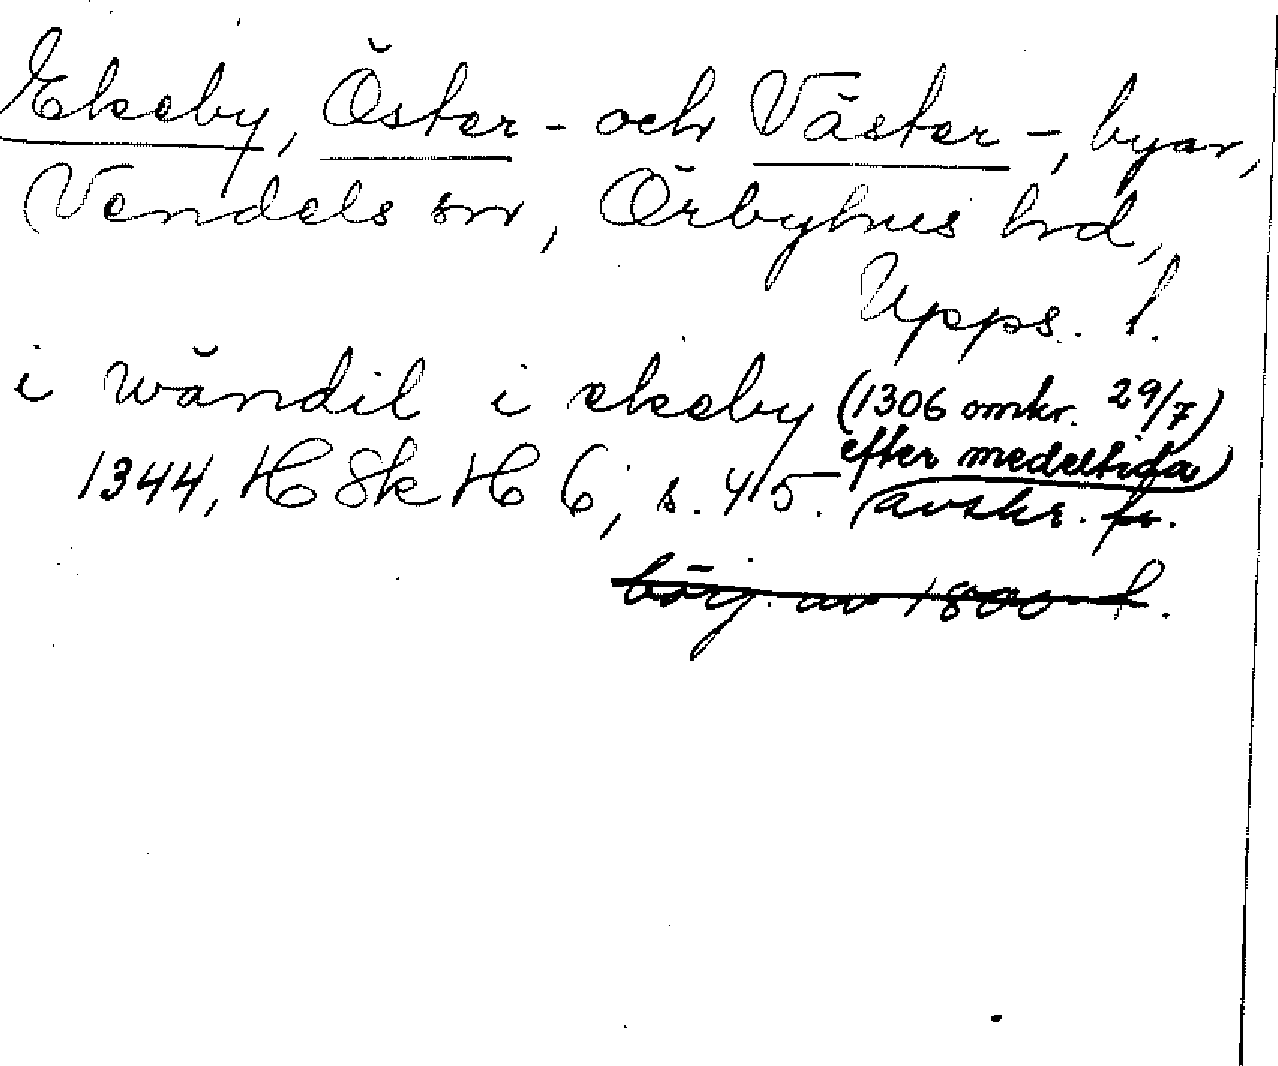 Ekeby, Öster- och Väster-, byar,
Vendels sn, Örbyhus hd,
Upps. l.
i wändil i ekeby (1306 omkr. 29/7)
efter medeltida
1344, HSkH 6, s. 45. avskr. fr.
börj. av 1800-t.